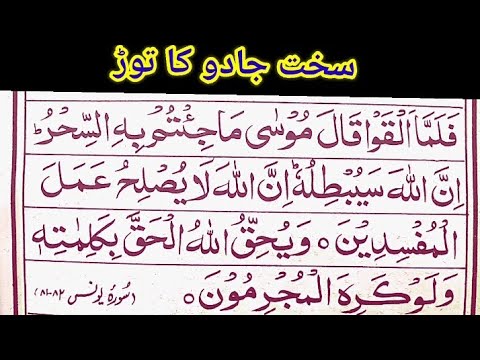 سخت جادو کا توڑ
فَلَمَّآ اَلْقَوْا قَالَ مُوْسٰى مَا جِئْتُمْ بِهِ السِّحْرُؕ
اِنَّ اللّٰهَ سَيُبْطِلُهٗؕ اِنَّ اللّٰهَ لَا يُصْلِحُ عَمَلَ
الْمُفْسِدِيْنَ○ وَيُحِقُّ اللّٰهُ الْحَقَّ بِكَلِمٰتِهٖ
وَلَوْ كَرِهَ الْمُجْرِمُوْنَ○ (سورۂ یونس ۸۲-۸۱)